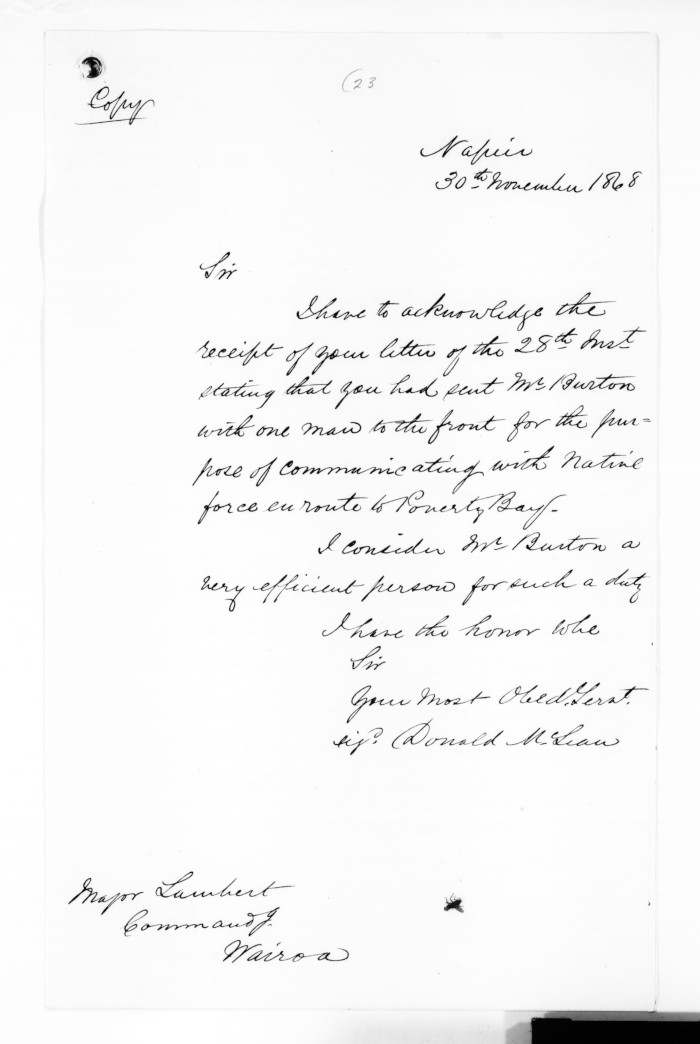 (23
Copy
Napier
30th November 1868
Sir
I have to acknowledge the
receipt of your letter of the 28th Inst
stating that you had sent Mr Burton
with one man to the front for the pur=
pose of communicating with Native
force en route to Poverty Bay.
I consider Mr Burton a
very efficient person for such a duty
I have the honor to be
Sir
Your Most Obed. Servt.
sigd. Donald McLean
Major Lambert
Commandg.
Wairoa